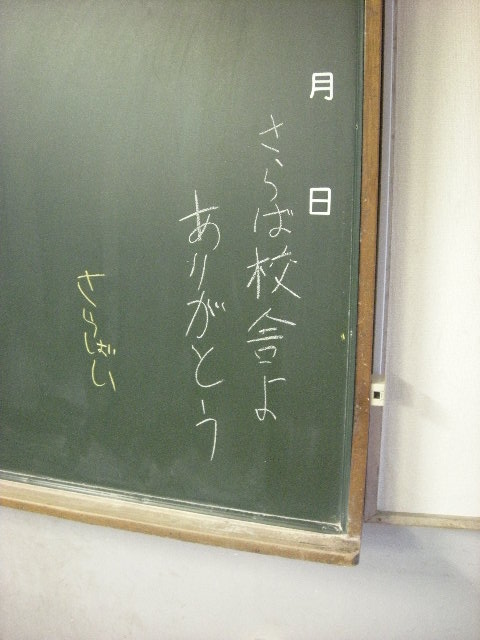 月 日
さらば校舎よ
ありがとう
さらばい